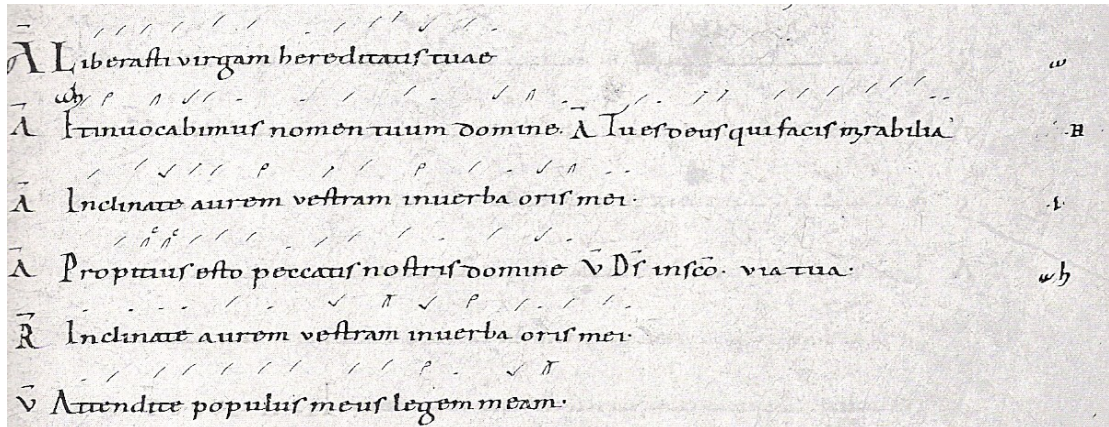 Ā Liberasti virgam hereditatis tuae ω
Ā Et invocabimus nomen tuum domine. Ā Tu es deus qui facis mirabilia. H
Ā Inclinate aurem vestram in verba oris mei. .ι.
Ā Propitius esto peccatis nostris domine v̄ Ds̄ in scō. via tua. ωh
R̄ Inclinate aurem vestram in verba oris mei.
v̄ Attendite populus meus legem meam.